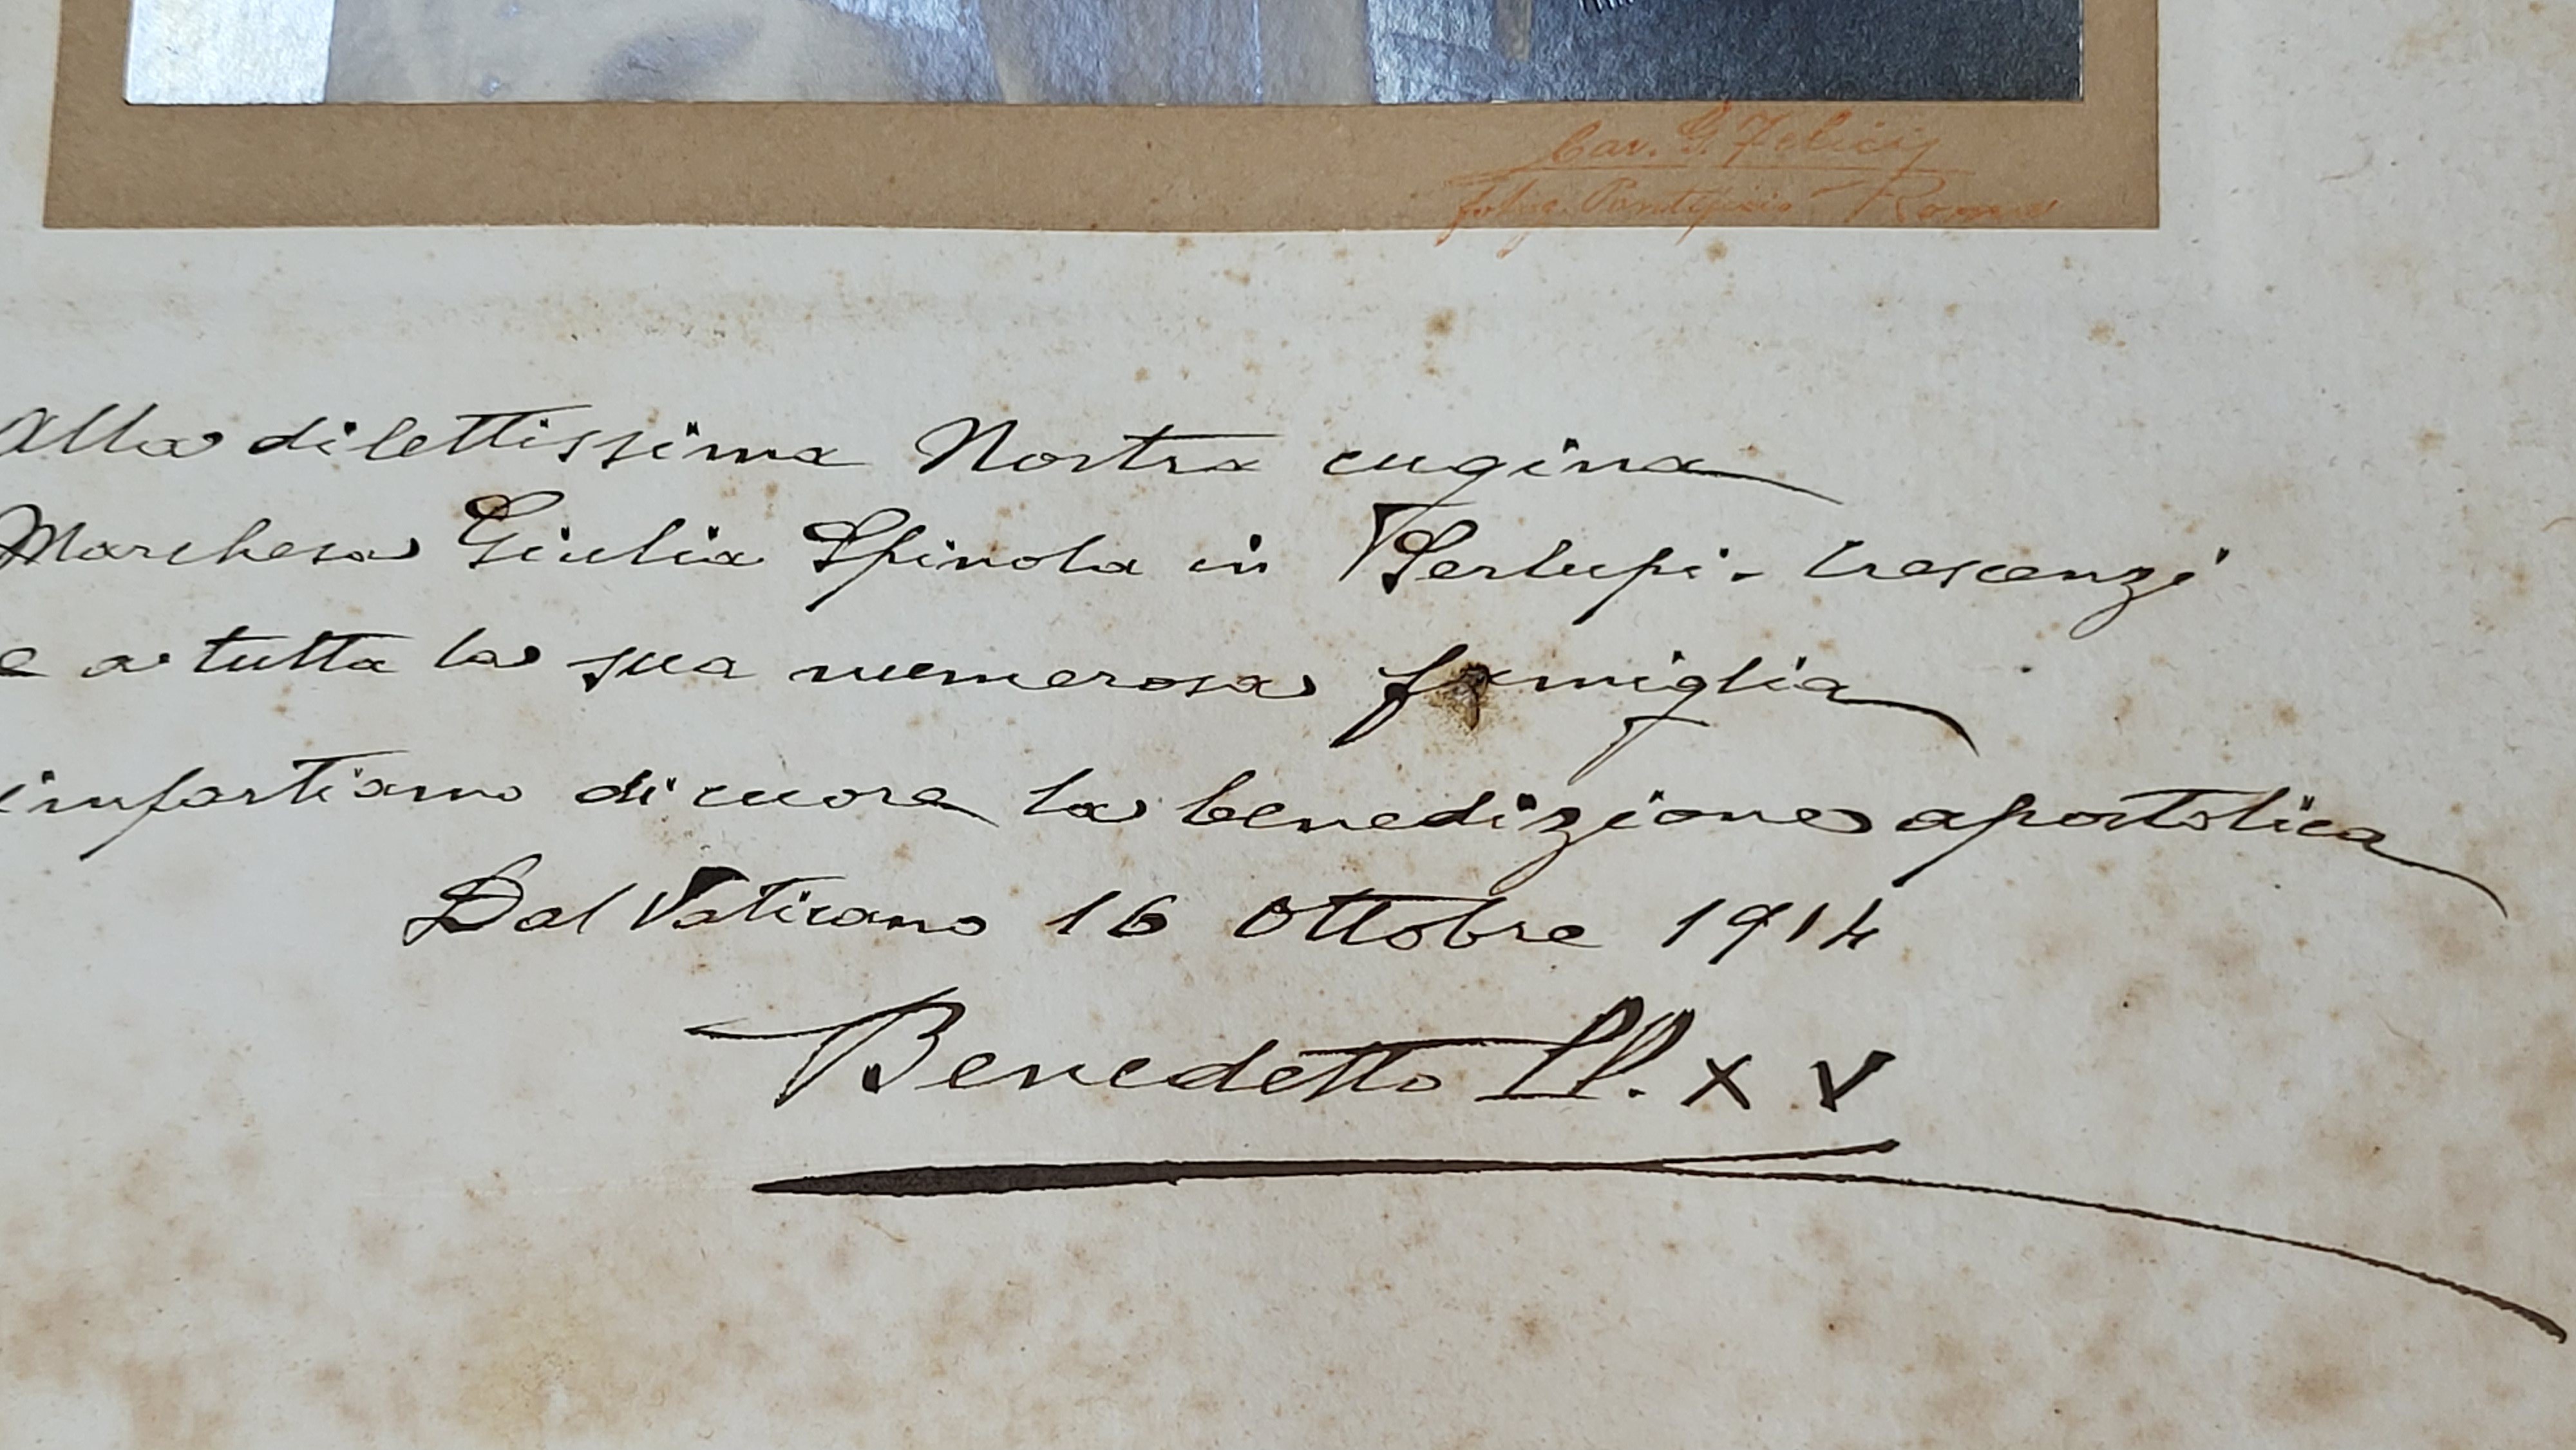 Cav. G. Felici
fotog. Pontificio - Roma
Alla dilettissima Nostra cugina
Marchesa Giulia Spinola in Serlupi-Crescenzi
e a tutta la sua numerosa famiglia
impartiamo di cuore la benedizione apostolica
Dal Vaticano 16 Ottobre 1914
Benedetto PP. XV